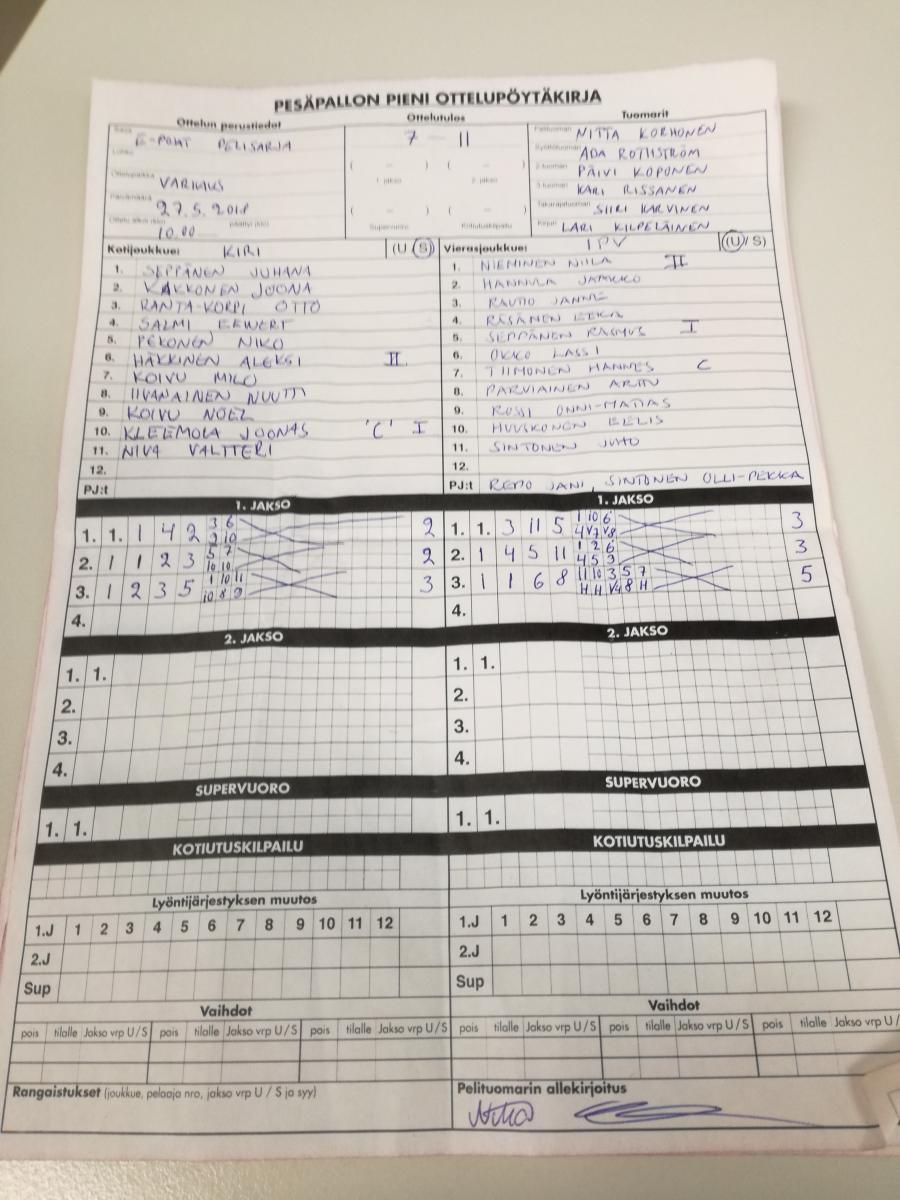 PESÄPALLON PIENI OTTELUPÖYTÄKIRJA
Ottelun perustiedot Ottelutulos Tuomarit
Sarja E-POJAT PELISARJA 7 - 11 Pelituomari NITTA KORHONEN
Lohko ( - ) ( - ) Syöttötuomari ADA ROTHSTRÖM
1. jakso 2. jakso 2-tuomari PÄIVI KOPONEN
Ottelupaikka VARKAUS 3-tuomari KARI RISSANEN
Päivämäärä 27.5.2018 ( - ) ( - ) Takarajatuomari SIIRI KARVINEN
Ottelu alkoi (klo) 10.00 päättyi (klo) Supervuoro Kotiutuskilpailu Kirjuri LARI KILPELÄINEN
Kotijoukkue: KIRI (U S)
1. SEPPÄNEN JUHANA
2. KAKKONEN JOONA
3. RANTA-KORPI OTTO
4. SALMI EEWERT
5. PEKONEN NIKO
6. HÄKKINEN ALEKSI II
7. KOIVU MILO
8. IIVANAINEN NUUTTI
9. KOIVU NOEL
10. KLEEMOLA JOONAS 'C' I
11. NIVA VALTTERI
12.
PJ:t
Vierasjoukkue: IPV (U/S)
1. NIEMINEN NIILA II
2. HANNULA JARKKO
3. RAUTIO JANNE
4. RÄSÄNEN EEKA
5. SEPPÄNEN RASMUS I
6. OKKO LASSI
7. TIIMONEN HANNES C
8. PARVIAINEN ARTTU
9. ROSSI ONNI-MATIAS
10. HUUSKONEN EELIS
11. SINTONEN JUHO
12.
PJ:t REPO JANI, SINTONEN OLLI-PEKKA
1. JAKSO
1. 1. 1 4 2 3 6 2
2 10
2. 1 1 2 3 5 7 2
10 10
3. 1 2 3 5 1 10 11 3
10 8 9
4.
1. JAKSO
1. 1. 3 11 5 1 10 6 3
4 V7 V8
2. 1 4 5 11 1 2 6 3
4 5 3
3. 1 1 6 8 11 10 3 5 7 5
H H V4 8 H
4.
2. JAKSO
1. 1.
2.
3.
4.
2. JAKSO
1. 1.
2.
3.
4.
SUPERVUORO SUPERVUORO
1. 1. 1. 1.
KOTIUTUSKILPAILU KOTIUTUSKILPAILU
Lyöntijärjestyksen muutos Lyöntijärjestyksen muutos
1.J 1 2 3 4 5 6 7 8 9 10 11 12 1.J 1 2 3 4 5 6 7 8 9 10 11 12
2.J 2.J
Sup Sup
Vaihdot Vaihdot
pois tilalle Jakso vrp U / S pois tilalle Jakso vrp U / S pois tilalle Jakso vrp U / S pois tilalle Jakso vrp U / S pois tilalle Jakso vrp U / S pois tilalle Jakso vrp U /
Rangaistukset (joukkue, pelaaja nro, jakso vrp U / S ja syy) Pelituomarin allekirjoitus